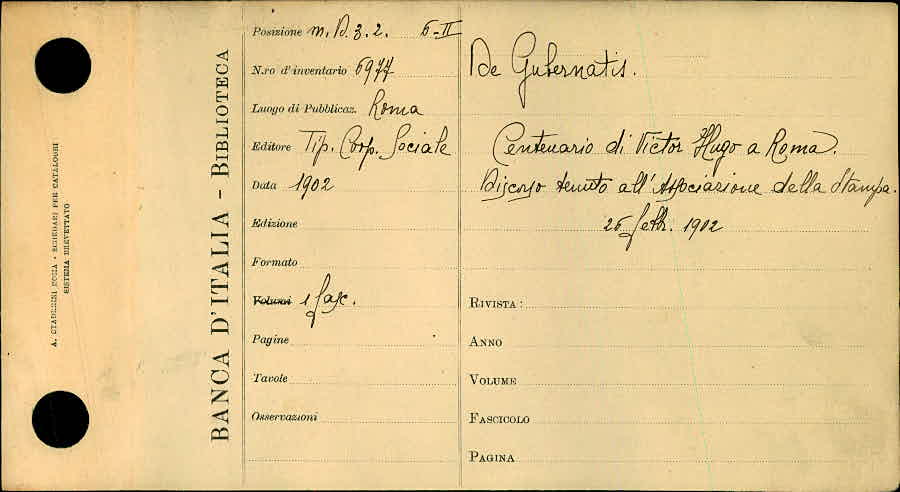 A. STADERINI ROMA - SCHEDARI PER CATALOGHI
SISTEMA BREVETTATO
BANCA D'ITALIA - BIBLIOTECA
Posizione m. D. 3. 2. 6-II
N.ro d'inventario 6977
Luogo di Pubblicaz. Roma
Editore Tip. Coop. Sociale
Data 1902
Edizione
Formato
Volumi 1 fasc.
Pagine
Tavole
Osservazioni
De Gubernatis.
Centenario di Victor Hugo a Roma.
Discorso tenuto all'Associazione della Stampa.
26 febbr. 1902
RIVISTA:
ANNO
VOLUME
FASCICOLO
PAGINA